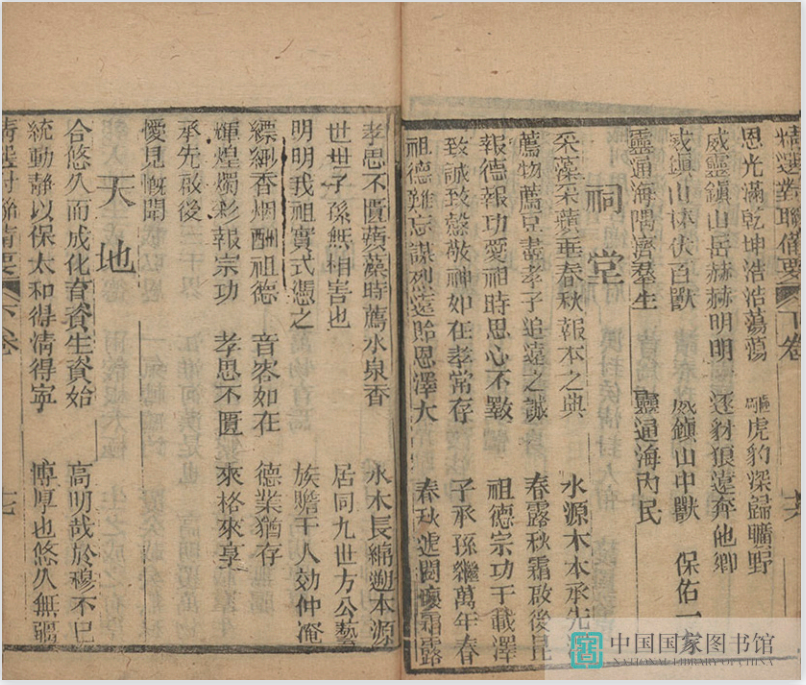 精選對聯備要 下卷
恩光滿乾坤浩浩蕩蕩 驅虎豹深歸曠野
威靈鎮山岳赫赫明明 逐豺狼遠奔他鄉
鎮山林伏百獸 鎮山中獸 保佑一
靈通海隅濟羣生 靈通海內民
祠堂
采藻采蘋垂春秋報本之典 水源木本承先
薦物薦豆盡孝子追遠之誠 春露秋霜啟後昆
報德報功愛祖時思心不斁 祖德宗功千載澤
致誠致慤敬神如在孝常存 子承孫繼萬年春
祖德難忘謀烈遠貽恩澤大 春秋遞閱悽霜露
孝思不匱蘋藻時薦水泉香 水木長綿遡本源
世世子孫無相害也 居同九世方公藝
明明我祖實式憑之 族贍千人効仲俺
縹緲香烟酬祖德 音容如在 德業猶存
輝煌燭彩報宗功 孝思不匱 來格來享
承先啟後
僾見愾聞
天地
合悠久而成化育資生資始 高明哉於穆不已
統動靜以保太和得清得寧 博厚也悠久無疆
精選對聯備要 下卷 十七
中国国家图书馆
NATIONAL LIBRARY OF CHINA